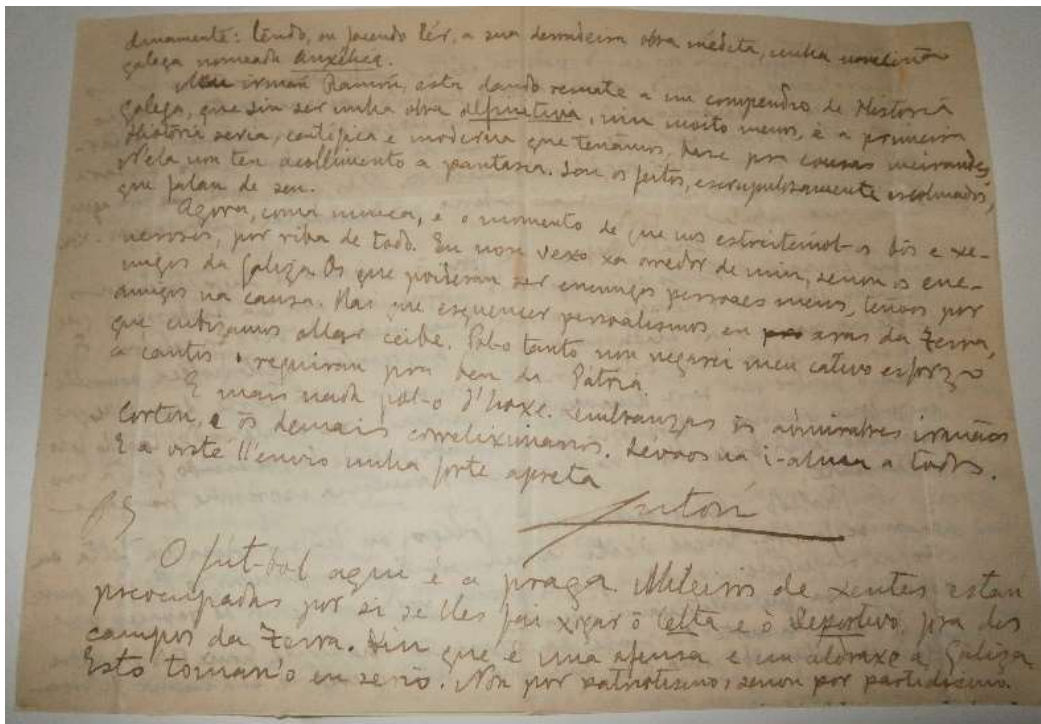 dinamente: lendo, ou facendo lêr, a sua derradeira obra inédita, unha
galega nomeada Anxélica.
Meu irmán Ramón, está dando remate a un compendio de Historia
galega, que sin ser unha obra definitiva, nin moito menos, é a primeira
Historia seria, e moderna que teñamos, hase por cousas
Nela non ten acollimento a pantasía. Son os feitos, escrupulosamente escolmados,
que falan de seu.
Agora, coma nunca, é o momento de que nos estreitemol-os bôs e xe-
nerosos, por riba de todo. Eu non vexo xa arredor de min, senon os ene-
migos da Galiza. Os que poideran ser enemigos persoaes meus, teños por
amigos na causa. Hai que esquencer persoalismos, en aras da Terra,
que cubizamos ollar ceibe. Pol-o tanto non negarei meu cativo esforzo
a cantos o requiran pra ben da Patria.
E mais nada pol-o d'hoxe. Lembranzas ôs admirabres irmáns
Cortón, e ôs demais correlixionarios. Lévoos na i-alma a todos.
E a vosté ll'envío unha forte aperta
Antón
PS
O fut-bol aquí é a praga. Milleiros de xentes están
preocupadas por si se lles fai xogar ô Celta e ô Deportivo, fra dos
campos da Terra. Din que é una ofensa e un aldraxe a Galiza
Esto tóman'o en serio. Non por patriotismo, senon por partidismo.